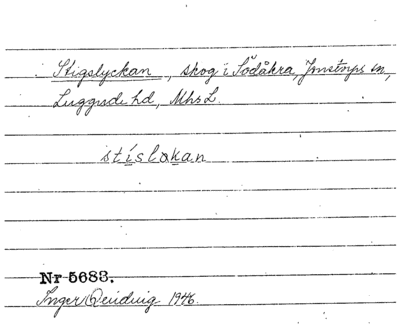 Stigslyckan, skog i Södåkra, Jonstorps sn,
Luggude hd, Mhs L.
stíslokan
Nr 5683.
Inger 1946.